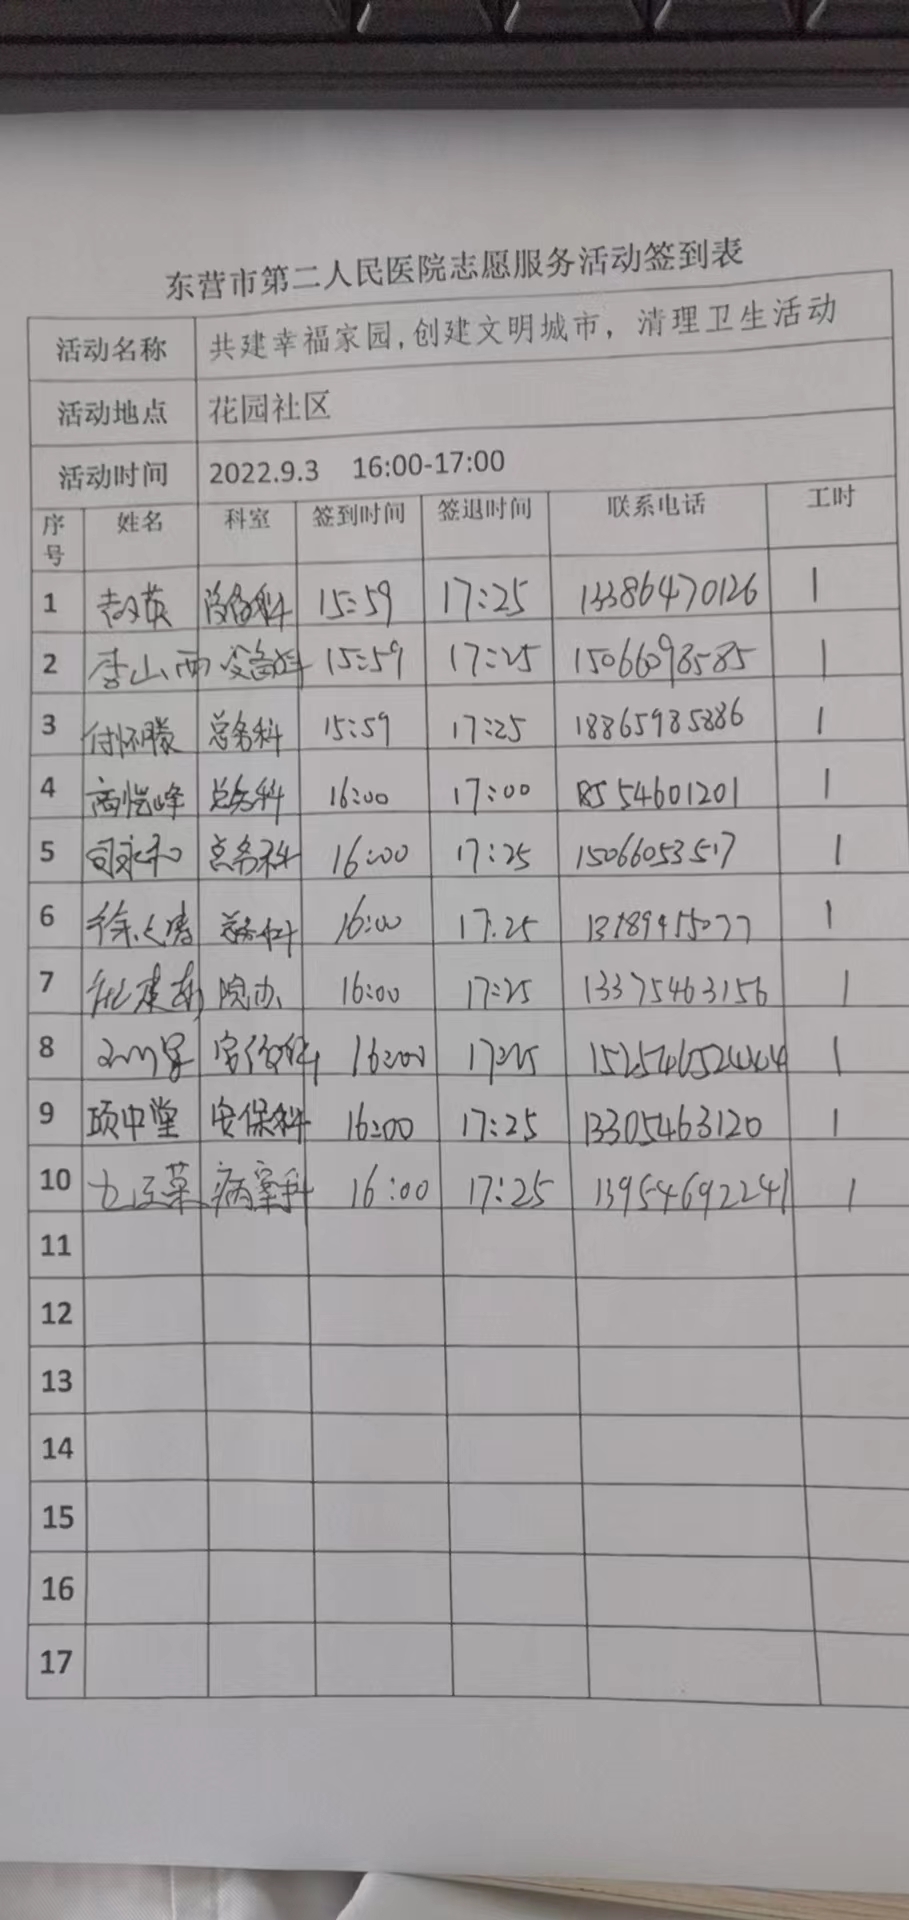 东营市第二人民医院志愿服务活动签到表
活动名称 共建幸福家园,创建文明城市，清理卫生活动
活动地点 花园社区
活动时间 2022.9.3 16:00-17:00
序号 姓名 科室 签到时间 签退时间 联系电话 工时
1 设备科 15:59 17:25 13386470126 1
2 李山西 设备科 15:59 17:25 15066098585 1
3 付怀腾 总务科 15:59 17:25 1
4 高恺峰 总务科 16:00 17:00 1
5 司永和 总务科 16:00 17:25 1
6 总务科 16:00 17:25 1
7 院办 16:00 17:25 13375463156 1
8 16:00 17:25 1
9 项中堂 安保科 16:00 17:25 13305463120 1
10 病案科 16:00 17:25 13954692241 1
11
12
13
14
15
16
17